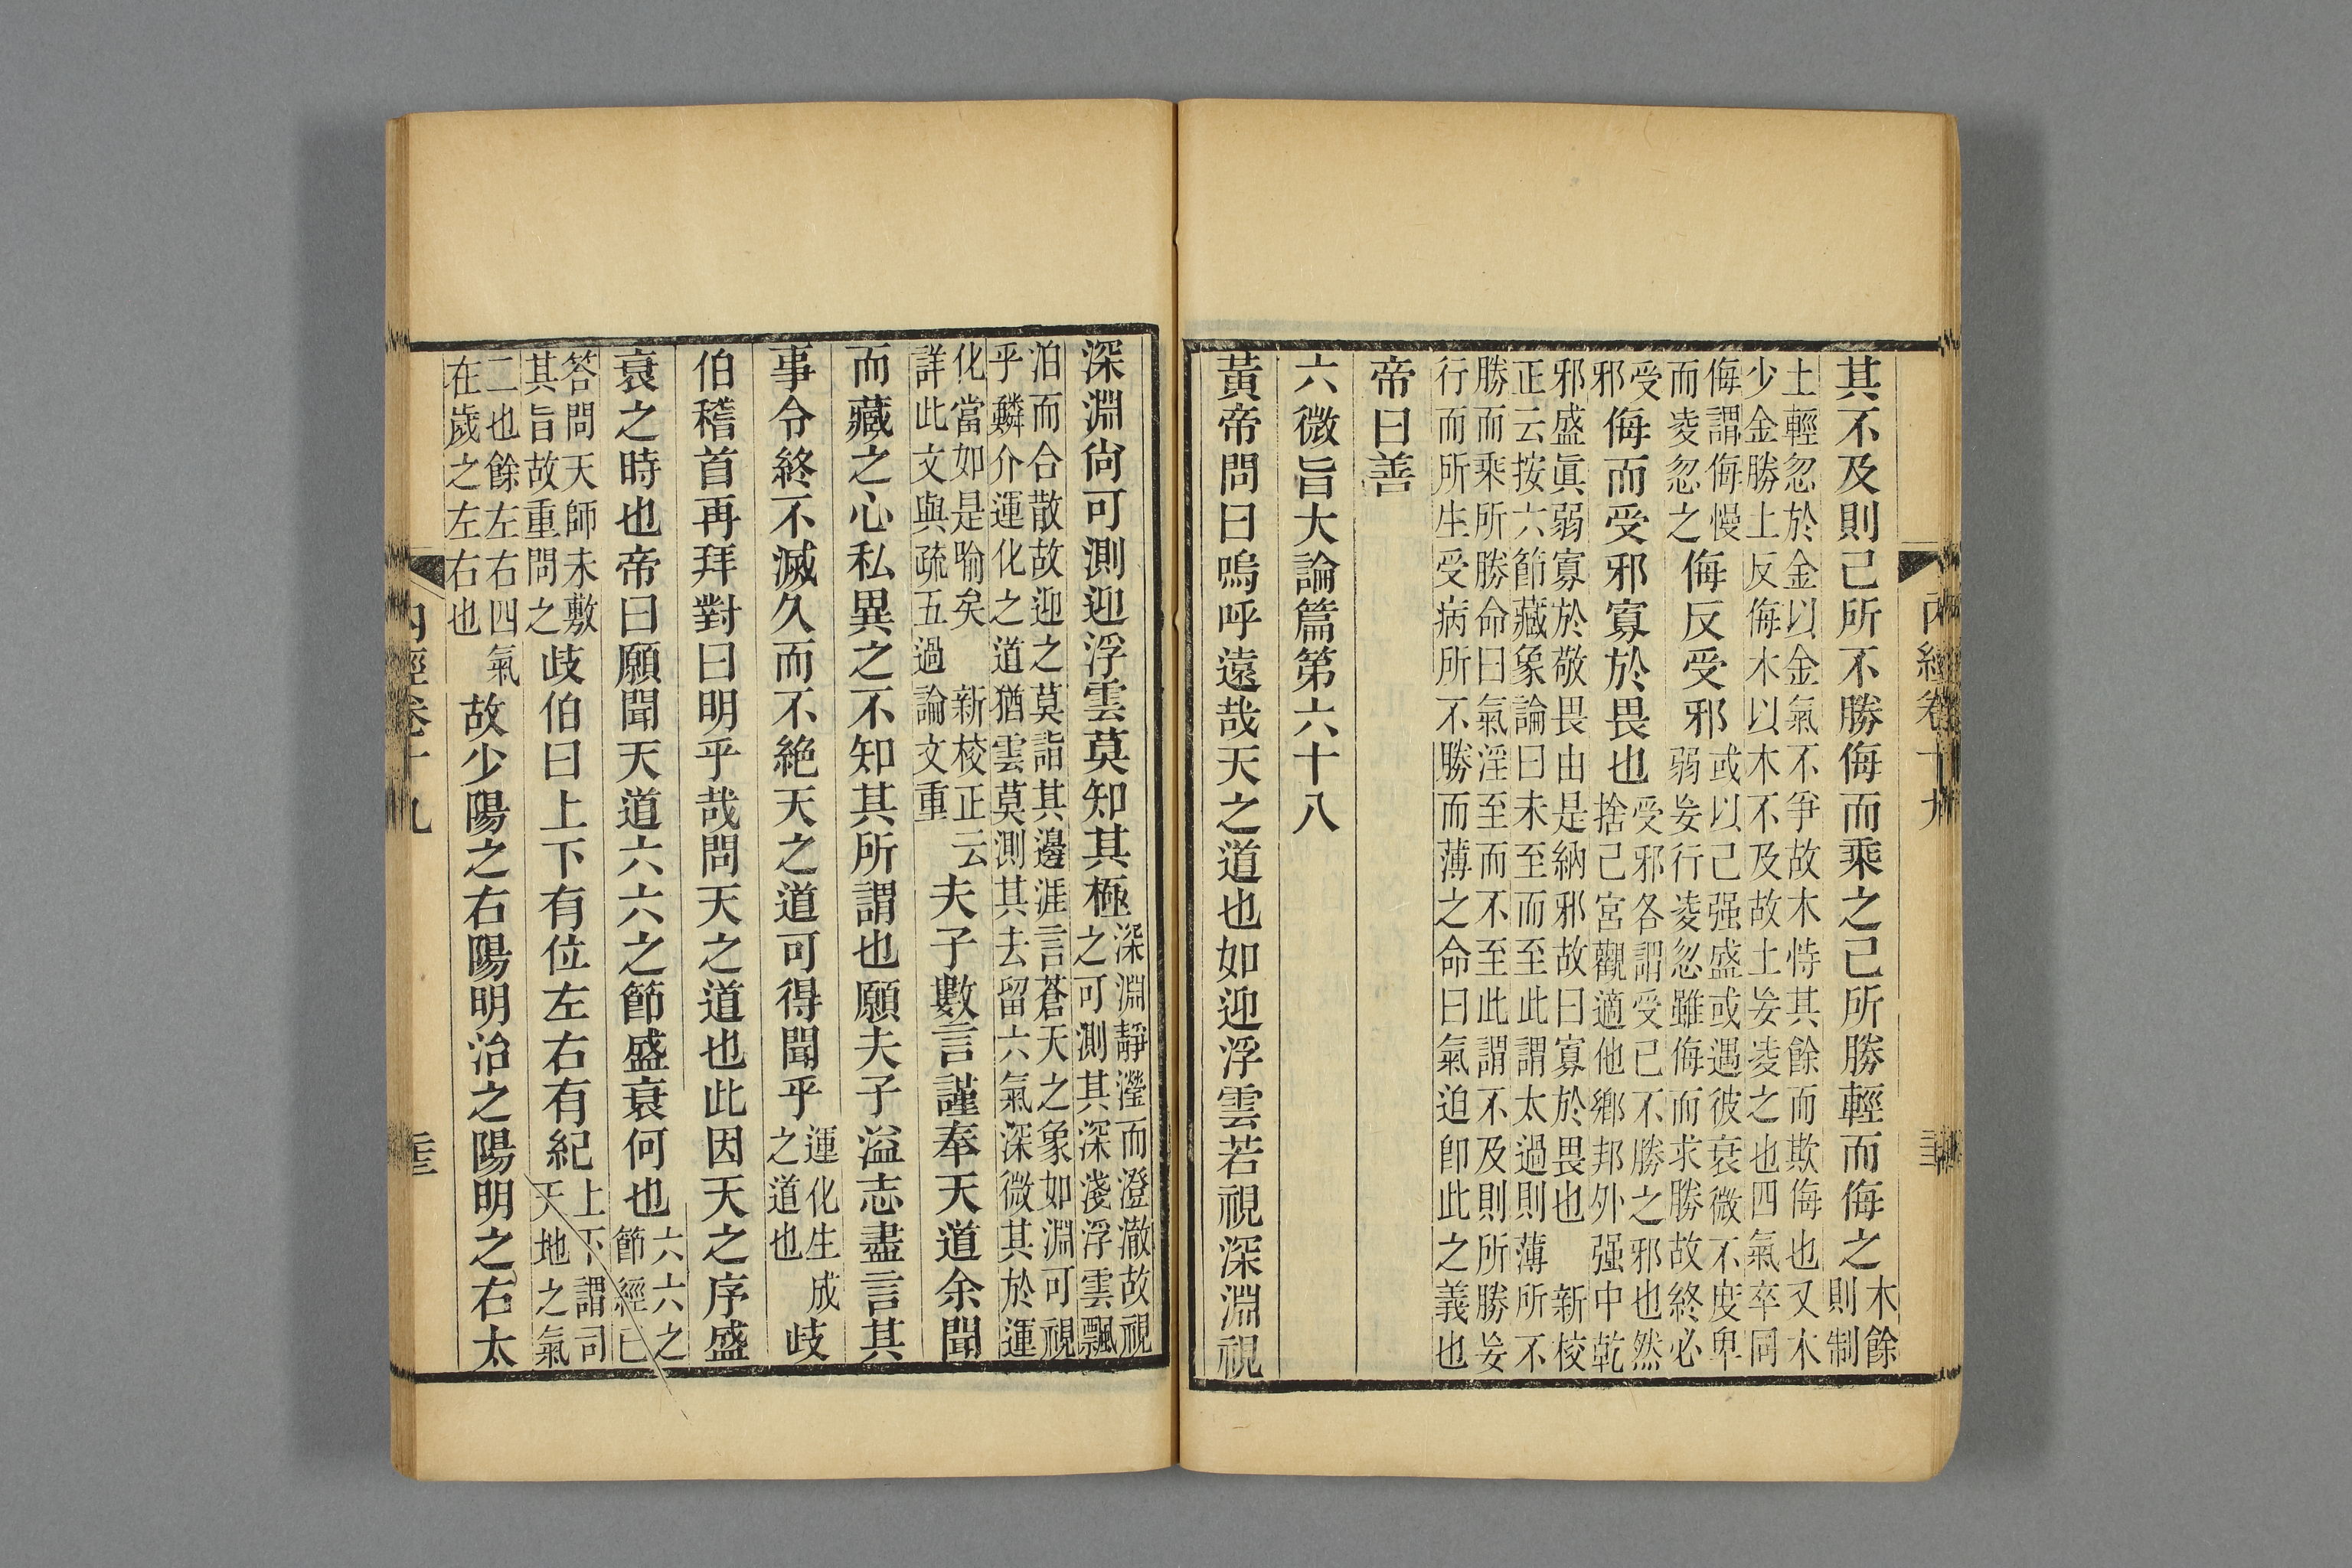 內經卷十九
其不及則己所不勝侮而乘之己所勝輕而侮之木餘
則制
土輕忽於金以金氣不爭故木恃其餘而欺侮也又木
少金勝土反侮木以木不及故土妄凌之也四氣卒同
侮謂侮慢
而凌忽之
侮反受邪
或以己强盛或遇彼衰微不度卑
弱妄行凌忽雖侮而求勝故終必
受
邪
侮而受邪寡於畏也
受邪各謂受己不勝之邪也然
捨己宮觀適他鄉邦外强中乾
邪盛眞弱寡於敬畏由是納邪故曰寡於畏也 新校
正云按六節藏象論曰未至而至此謂太過則薄所不
勝而乘所勝命曰氣淫至而不至此謂不及則所勝妄
行而所生受病所不勝而薄之命曰氣迫卽此之義也
帝曰善
六微旨大論篇第六十八
黃帝問曰嗚呼遠哉天之道也如迎浮雲若視深淵視
深淵尙可測迎浮雲莫知其極
深淵靜瀅而澄澈故視
之可測其深淺浮雲飄
泊而合散故迎之莫詣其邊涯言蒼天之象如淵可視
乎鱗介運化之道猶雲莫測其去留六氣深微其於運
化當如是喻矣 新校正云
詳此文與疏五過論文重
夫子數言謹奉天道余聞
而藏之心私異之不知其所謂也願夫子溢志盡言其
事令終不滅久而不絕天之道可得聞乎
運化生成
之道也
歧
伯稽首再拜對曰明乎哉問天之道也此因天之序盛
衰之時也帝曰願聞天道六六之節盛衰何也
六六之
節經已
答問天師未敷
其旨故重問之
歧伯曰上下有位左右有紀
上下謂司
天地之氣
二也餘左右四氣
在歲之左右也
故少陽之右陽明治之陽明之右太
內經卷十九